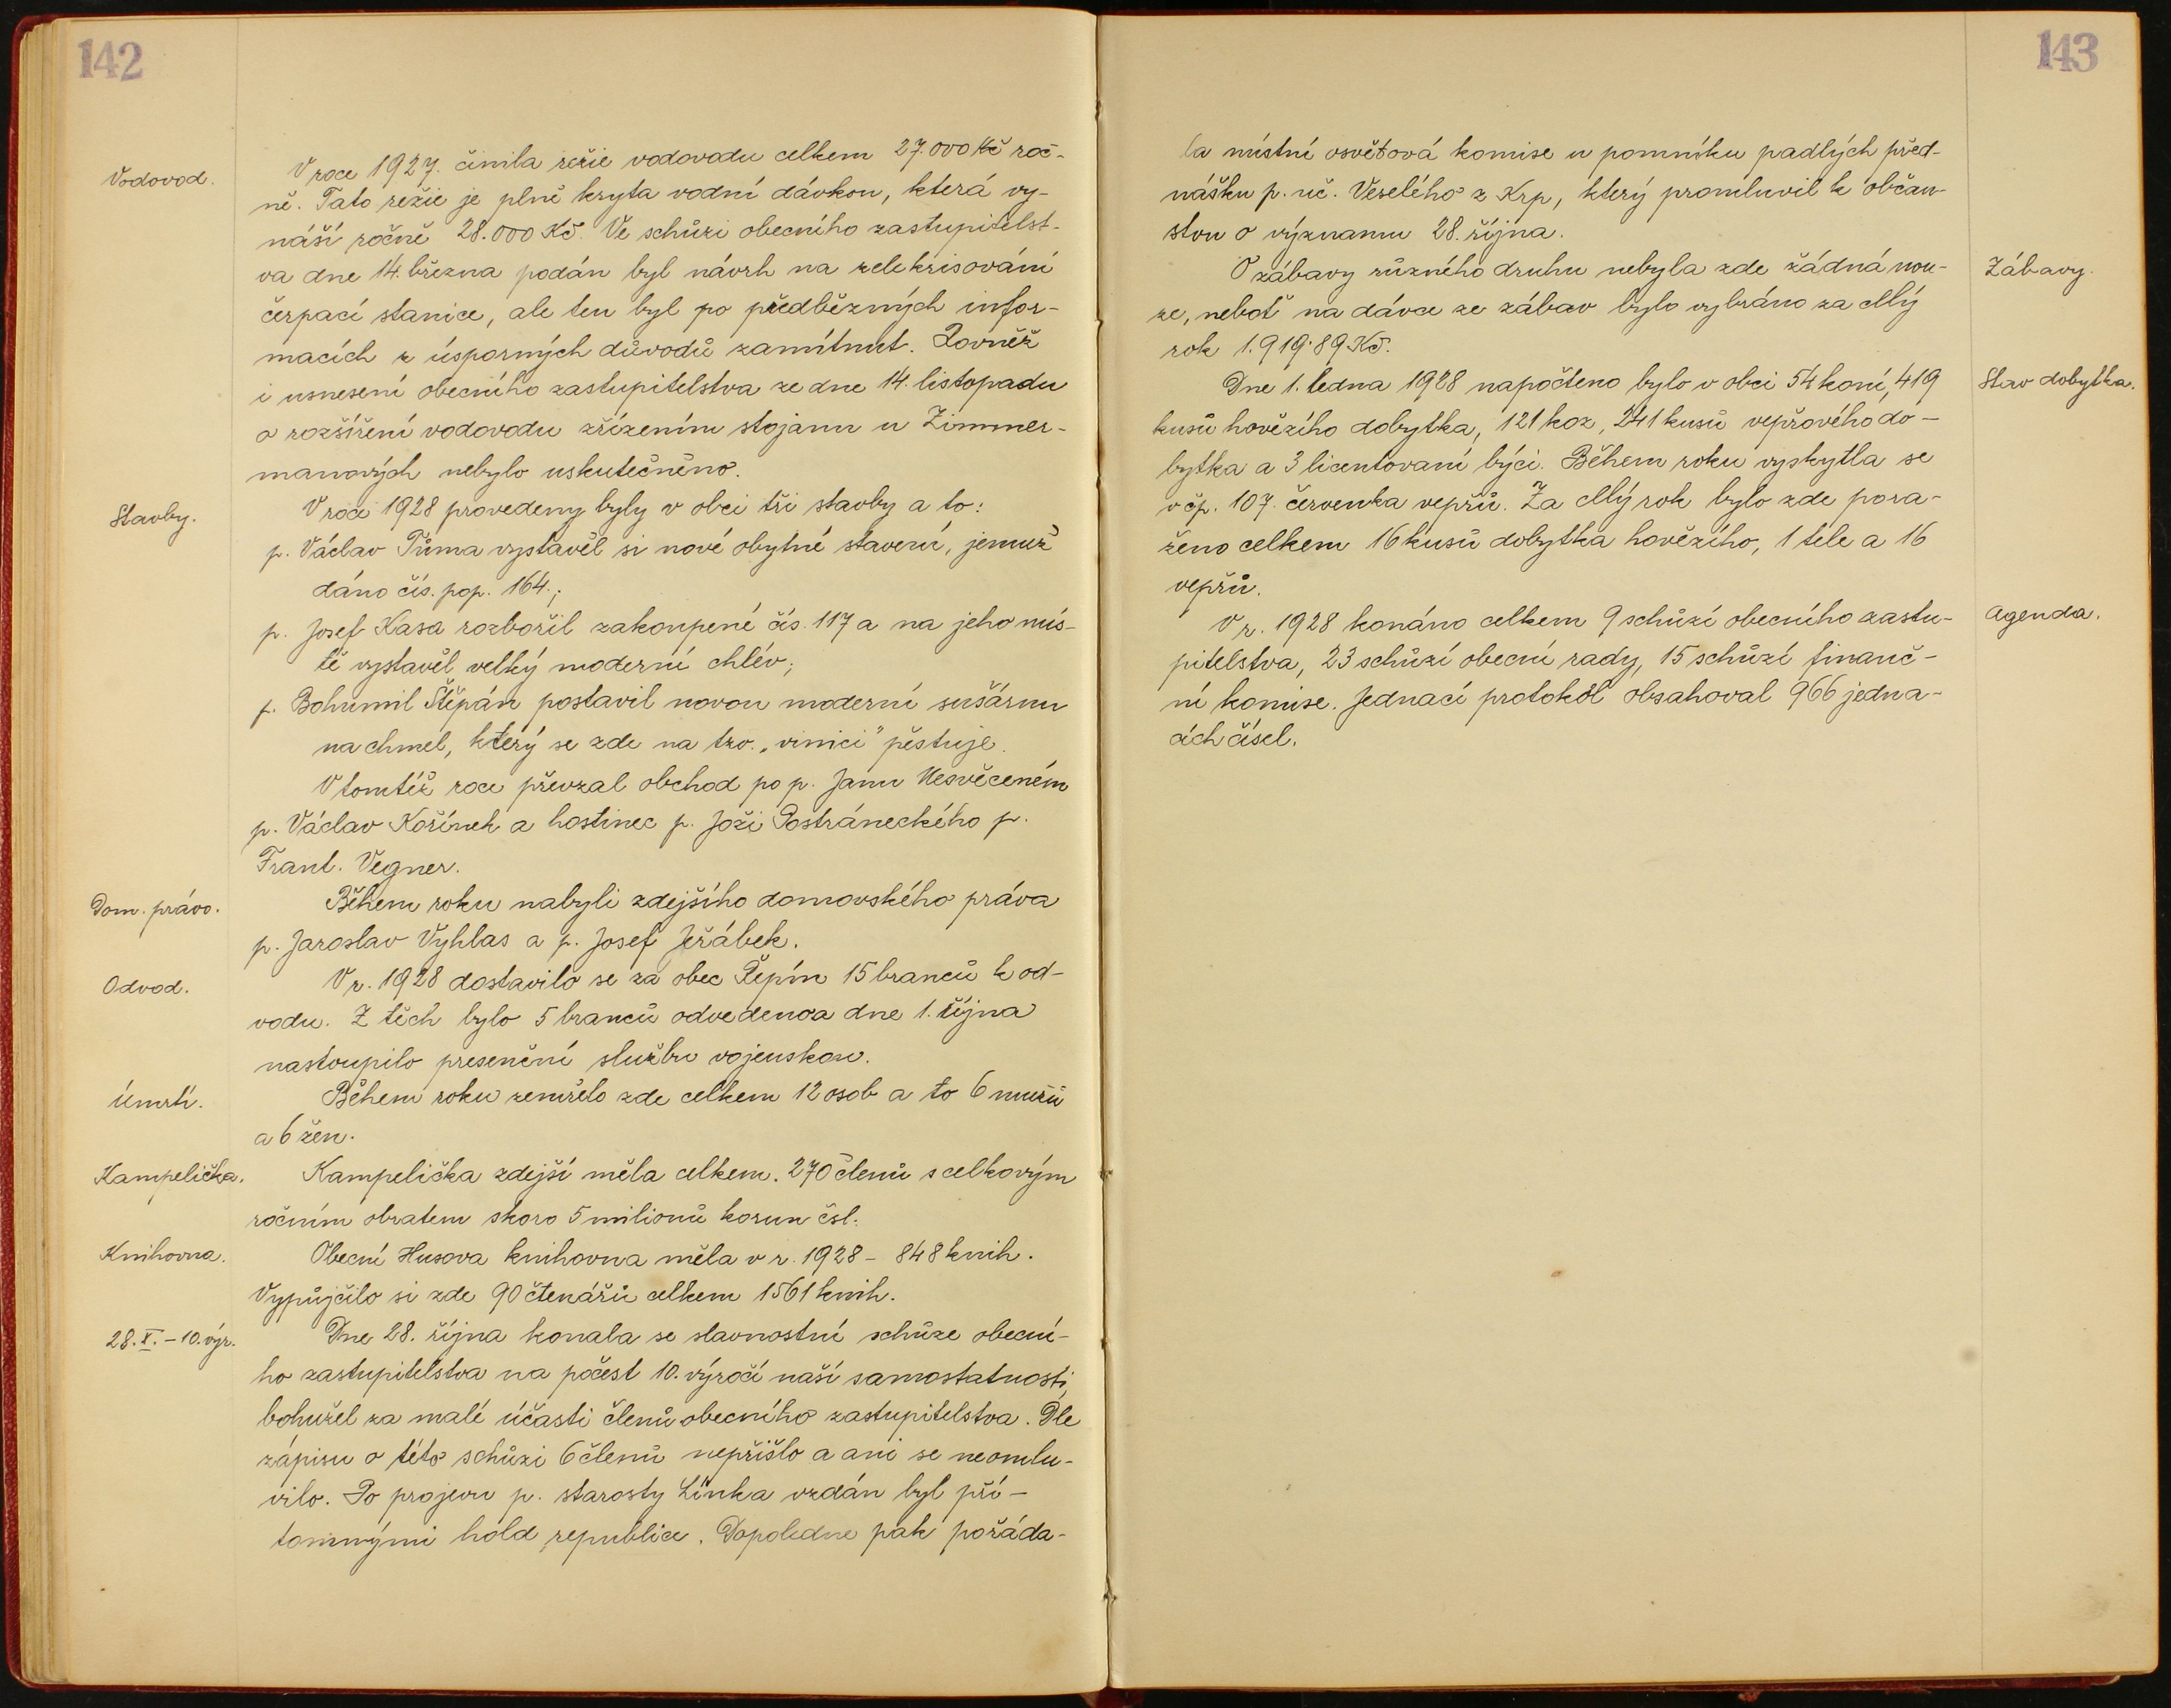 142
Vodovod.
V roce 1927. činila režie vodovodu celkem 27.000 Kč roč-
ně. Tato režie je plně kryta vodní dávkou, která vy-
náší ročně 28.000 Kč. Ve schůzi obecního zastupitelst-
va dne 14. března podán byl návrh na zelekrisování
čerpací stanice, ale ten byl po předběžných infor-
macích z úsporných důvodů zamítnut. Rovněž
i usnesení obecního zastupitelstva ze dne 14. listopadu
o rozšíření vodovodu zřízením stojanu u Zimmer-
manových nebylo uskutečněno.
Stavby.
V roce 1928 provedeny byly v obci tři stavby a to:
p. Václav Tůma vystavěl si nové obytné stavení, jemuž
dáno čís. pop. 164.;
p. Josef Kasa rozbořil zakoupené čís. 117 a na jeho mís-
tě vystavěl velký moderní chlév;
p. Bohumil Štěpán postavil novou moderní sušárnu
na chmel, který se zde na tzv. „vinici" pěstuje.
V tomtéž roce převzal obchod po p. Janu Nesvěceném
p. Václav Kořínek a hostinec p. Joži Postráneckého p.
Frant. Vegner.
Dom. právo.
Během roku nabyli zdejšího domovského práva
p. Jaroslav Vyhlas a p. Josef Jeřábek.
Odvod.
V r. 1928 dostavilo se za obec Řepín 15 branců k od-
vodu. Z těch bylo 5 branců odvedeno a dne 1. října
nastoupilo presenční službu vojenskou.
Úmrtí.
Během roku zemřelo zde celkem 12 osob a to 6 mužů
a 6 žen.
Kampelička.
Kampelička zdejší měla celkem. 270 členů s celkovým
ročním obratem skoro 5 milionů korun čsl.
Knihovna.
Obecní Husova knihovna měla v r. 1928 - 848 knih.
Vypůjčilo si zde 90 čtenářů celkem 1561 knih.
28. X. - 10. výr.
Dne 28. října konala se slavnostní schůze obecní-
ho zastupitelstva na počest 10. výročí naší samostatnosti,
bohužel za malé účasti členů obecního zastupitelstva. Dle
zápisu o této schůzi 6 členů nepřišlo a ani se neomlu-
vilo. Po projevu p. starosty Línka vzdán byl pří-
tomnými hold republice. Dopoledne pak pořáda-
143
la místní osvětová komise u pomníku padlých před-
nášku p. uč. Veselého z Krp, který promluvil k občan-
stvu o významu 28. října.
Zábavy.
O zábavy různého druhu nebyla zde žádná nou-
ze, neboť na dávce ze zábav bylo vybráno za celý
rok 1.919·89 Kč.
Stav dobytka.
Dne 1. ledna 1928 napočteno bylo v obci 54 koní, 419
kusů hovězího dobytka, 121 koz, 241 kusů vepřového do-
bytka a 3 licentovaní býci. Během roku vyskytla se
v čp. 107. červenka vepřů. Za celý rok bylo zde pora-
ženo celkem 16 kusů dobytka hovězího, 1 tele a 16
vepřů.
Agenda.
V r. 1928 konáno celkem 9 schůzí obecního zastu-
pitelstva, 23 schůzí obecní rady, 15 schůzí finanč-
ní komise. Jednací protokol obsahoval 966 jedna-
cích čísel.